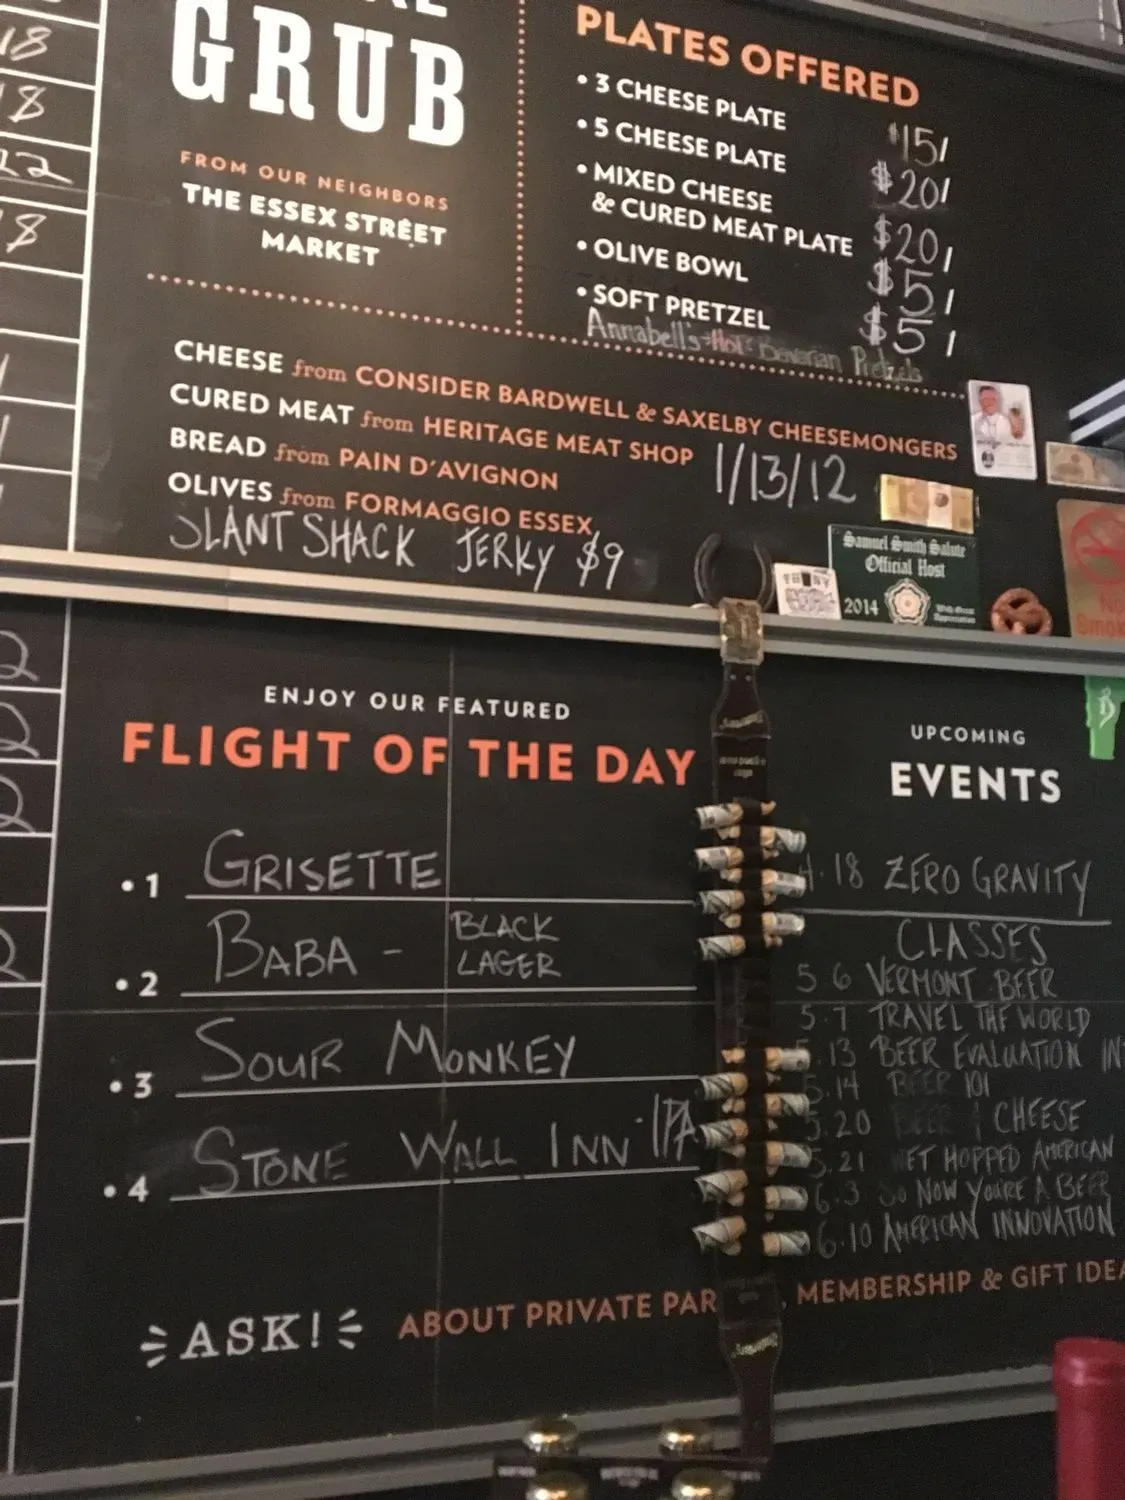 GRUB
FROM OUR NEIGHBORS
THE ESSEX STREET
MARKET
PLATES OFFERED
• 3 CHEESE PLATE $15/
• 5 CHEESE PLATE $20/
• MIXED CHEESE
& CURED MEAT PLATE $20/
• OLIVE BOWL $5/
• SOFT PRETZEL $5/
Annabell's Hot Bavarian Pretzels
CHEESE from CONSIDER BARDWELL & SAXELBY CHEESEMONGERS
CURED MEAT from HERITAGE MEAT SHOP
BREAD from PAIN D'AVIGNON
1/13/12
OLIVES from FORMAGGIO ESSEX
SLANT SHACK JERKY $9
Samuel Smith Salute
Official Host
2014
With Great
Appreciation
No
Smok
18
18
22
18
ENJOY OUR FEATURED
FLIGHT OF THE DAY
• 1 GRISETTE
• 2 BABA - BLACK
LAGER
• 3 SOUR MONKEY
• 4 STONE WALL INN IPA
UPCOMING
EVENTS
4.18 ZERO GRAVITY
CLASSES
5 6 VERMONT BEER
5.7 TRAVEL THE WORLD
5.13 BEER EVALUATION IN
5.14 BEER 101
5.20 BEER & CHEESE
5.21 WET HOPPED AMERICAN
6.3 SO NOW YOU'RE A BEER
6.10 AMERICAN INNOVATION
ASK! ABOUT PRIVATE PAR , MEMBERSHIP & GIFT IDEA